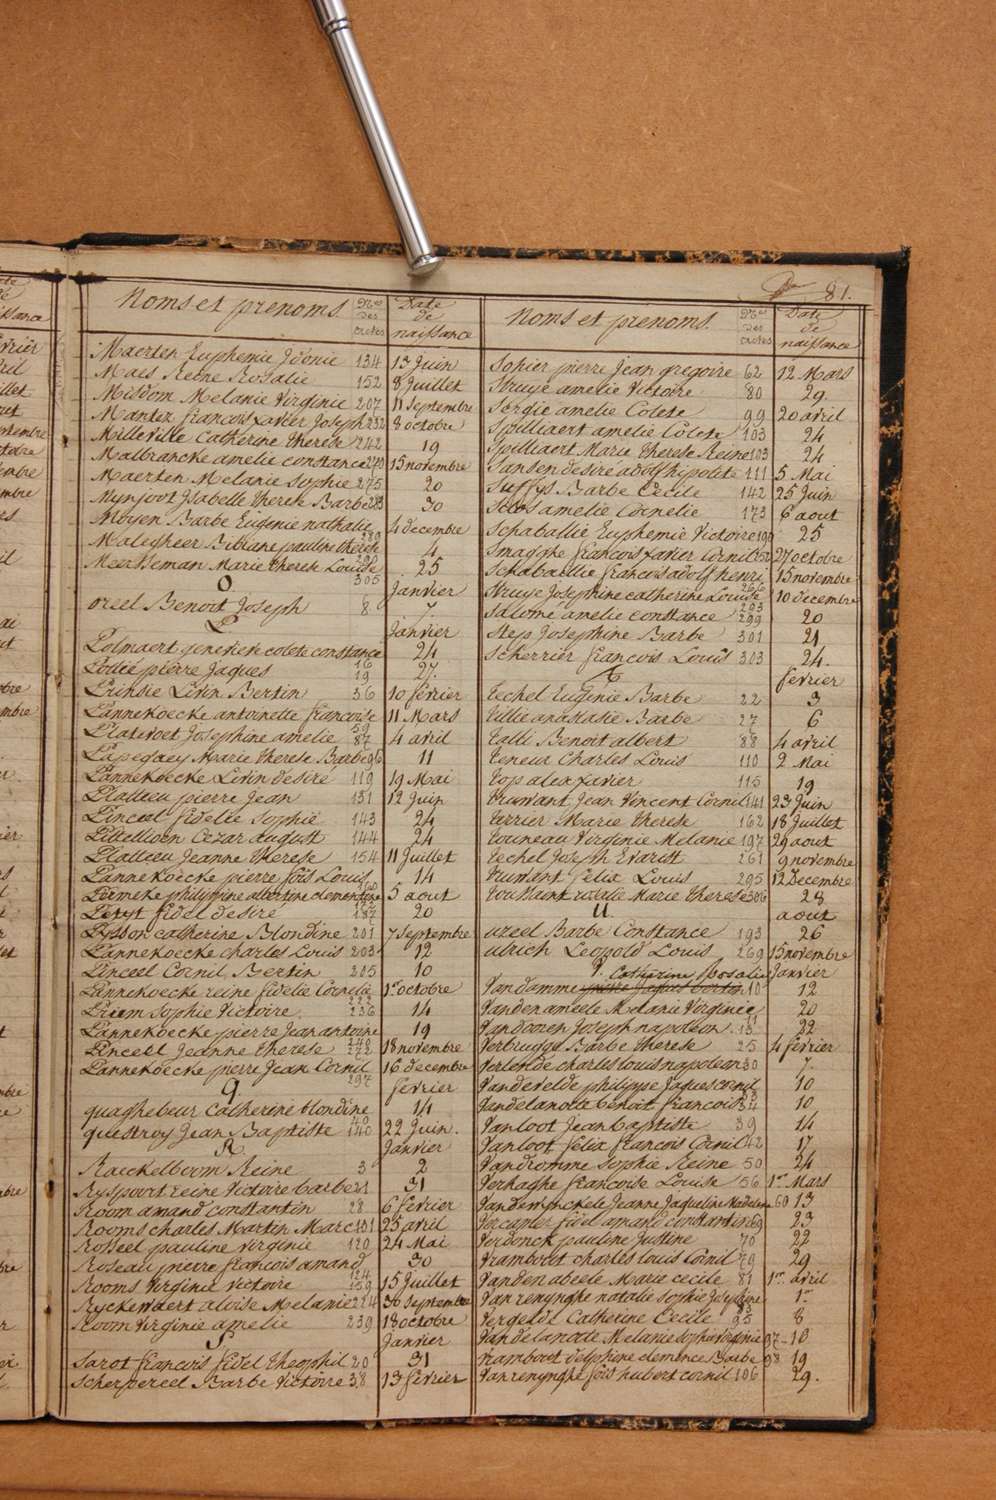 81.
Noms et prenoms. Nos des actes Date de naissance
Maerten Euphemie Idonie 134 13 Juin
Maes Reine Rosalie 152 8 Juillet
Misdom Melanie Virginie 207 11 Septembre
Mantez françois Xavier Joseph 232 8 octobre
Milleville Catherine therese 242 19
Malbrancke amelie constance 270 15 novembre
Maerten Melanie Sophie 275 20
Mynsoot Isabelle therese Barbe 283 30
Moyen Barbe Eugenie nathalie 289 4 decembre
Malegheer Bibiane pauline therese 290 4
Meersseman Marie therese Louise 305 25
O Janvier
oreel Benoit Joseph 8 7
P Janvier
Polmaert genevieve colete constance 16 24
Pollie pierre Jaques 19 27.
Prihsie Livin Bertin 36 10 février
Pannekoecke antoinette françoise 59 11 Mars
Platevoet Josephine amelie 87 4 avril
Papegaey Marie therese Barbe 96 11
Pannekoecke Livin desire 119 19 Mai
Platteeu pierre Jean 131 12 Juin
Pinceel fidelle Sophie 143 24
Pittellioen Cezar august 144 24
Platteeu Jeanne therese 154 11 Juillet
Pannekoecke pierre fois Louis 14
Permeke philippine albertine clementine 5 aout
Petyt fidel desiré 187 20
Pysson catherine Blondine 201 7 Septembre
Pannekoecke charles Louis 203 12
Pinceel Cornil Bertin 205 10
Pannekoecke reine fidelie Cornelie 222 1er octobre
Priem Sophie Victoire 236 14
Pannekoecke pierre Jean antoine 240 19
Pinceel Jeanne therese 272 18 novembre
Pannekoecke pierre Jean Cornil 297 16 decembre
Q février
quaghebeur Catherine blondine 40 14
questroy Jean Baptiste 140 22 Juin.
R Janvier
Raeckelboom Reine 3 2
Ryspoort reine Victoire barbe 21 31
Room amand constantin 28 6 février
Rooms charles Martin Marc 101 25 avril
Rosseel pauline virginie 120 24 Mai
Roseau pierre francois amand 124 30
Rooms Virginie victoire 159 15 Juillet
Ryckewaert aloise Melanie 224 30 Septembre
Room Virginie amelie 239 18 octobre
S Janvier
Sarot francois fidel theophil 20 31
Scherpereel Barbe Victoire 38 13 février
Noms et prenoms. Nos des actes Date de naissance
Sohier pierre Jean gregoire 62 12 Mars
Struye amelie Victoire 80 29.
Sergie amelie Colete 99 20 avril
Spilliaert amelie Colete 103 24
Spilliaert Marie therese Reine 103 24
Sanden desire adolf hipolite 111 5 Mai
Suffys Barbe Cecile 142 25 Juin
Stoos amelie Cornelie 173 6 aout
Schaballie Euphemie Victoire 190 25
Smagghe francois xavier Cornil 250 27 octobre
Schabaillie francois adolf henri 266 15 novembre
Struye Josephine catherine Louise 293 10 decembre
Salomé amelie constance 299 20
Step Josephine Barbe 301 21
Scherrier françois Louis 303 24.
T février
Techel Eugenie Barbe 22 3
Tillie anastasie Barbe 27 6
Talli Benoit albert 88 4 avril
Teneur Charles Louis 110 2 Mai
Top alex favier 115 19
Truwant Jean Vincent Cornil 141 23 Juin
Terrier Marie therese 162 18 Juillet
Touneau Virginie Melanie 197 29 aout
Techel Joseph Evarist 261 9 novembre
Truwant felix Louis 295 12 Decembre
Toussaint rosalie Marie therese 306 28
U aout
ureel Barbe Constance 193 26
ulrich Leopold Louis 269 15 novembre
V. Catherine Rosalie Janvier
Vandamme pierre Jaques bertin 10 12
Vanden ameele Melanie Virginie 11 20
Vandooren Joseph napoleon 13 22
Verbrugge Barbe therese 25 4 février
Verlende charles louis napoleon 30 7.
Vandevelde philippe Jaques cornil 33 10
Vandelanotte benoit francois 34 10
Vanloot Jean baptiste 39 14
Vanloot felix francois Cornil 42 17
Vandromme Sophie Reine 50 24
Verhaghe francoise Louise 56 1er Mars
Vandewynckele Jeanne Jaqueline Madelene 60 13
Vercamer fidel amand constantin 69 23
Verdonck pauline Justine 70 22
Vrambout charles louis Cornil 79 29
Vanden abeele Marie cecile 81 1er avril
Van renynghe natalie Sophie Josephine 83 1er
Vergeldt Catherine Cecile 95 8
Vandelanotte Melanie Sophie Virginie 97 10
Vrambout delphine clemence Barbe 98 19
Van renynghe fois hubert cornil 106 29.